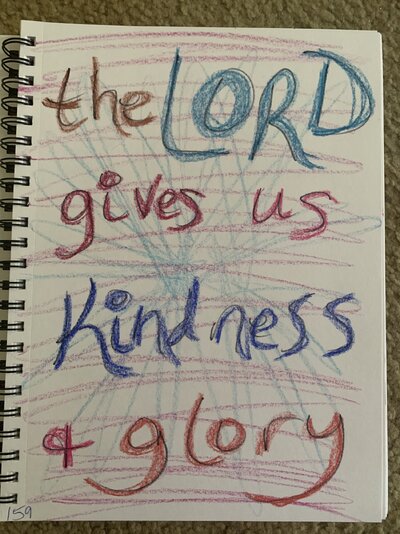 the LORD
gives us
Kindness
& glory
159